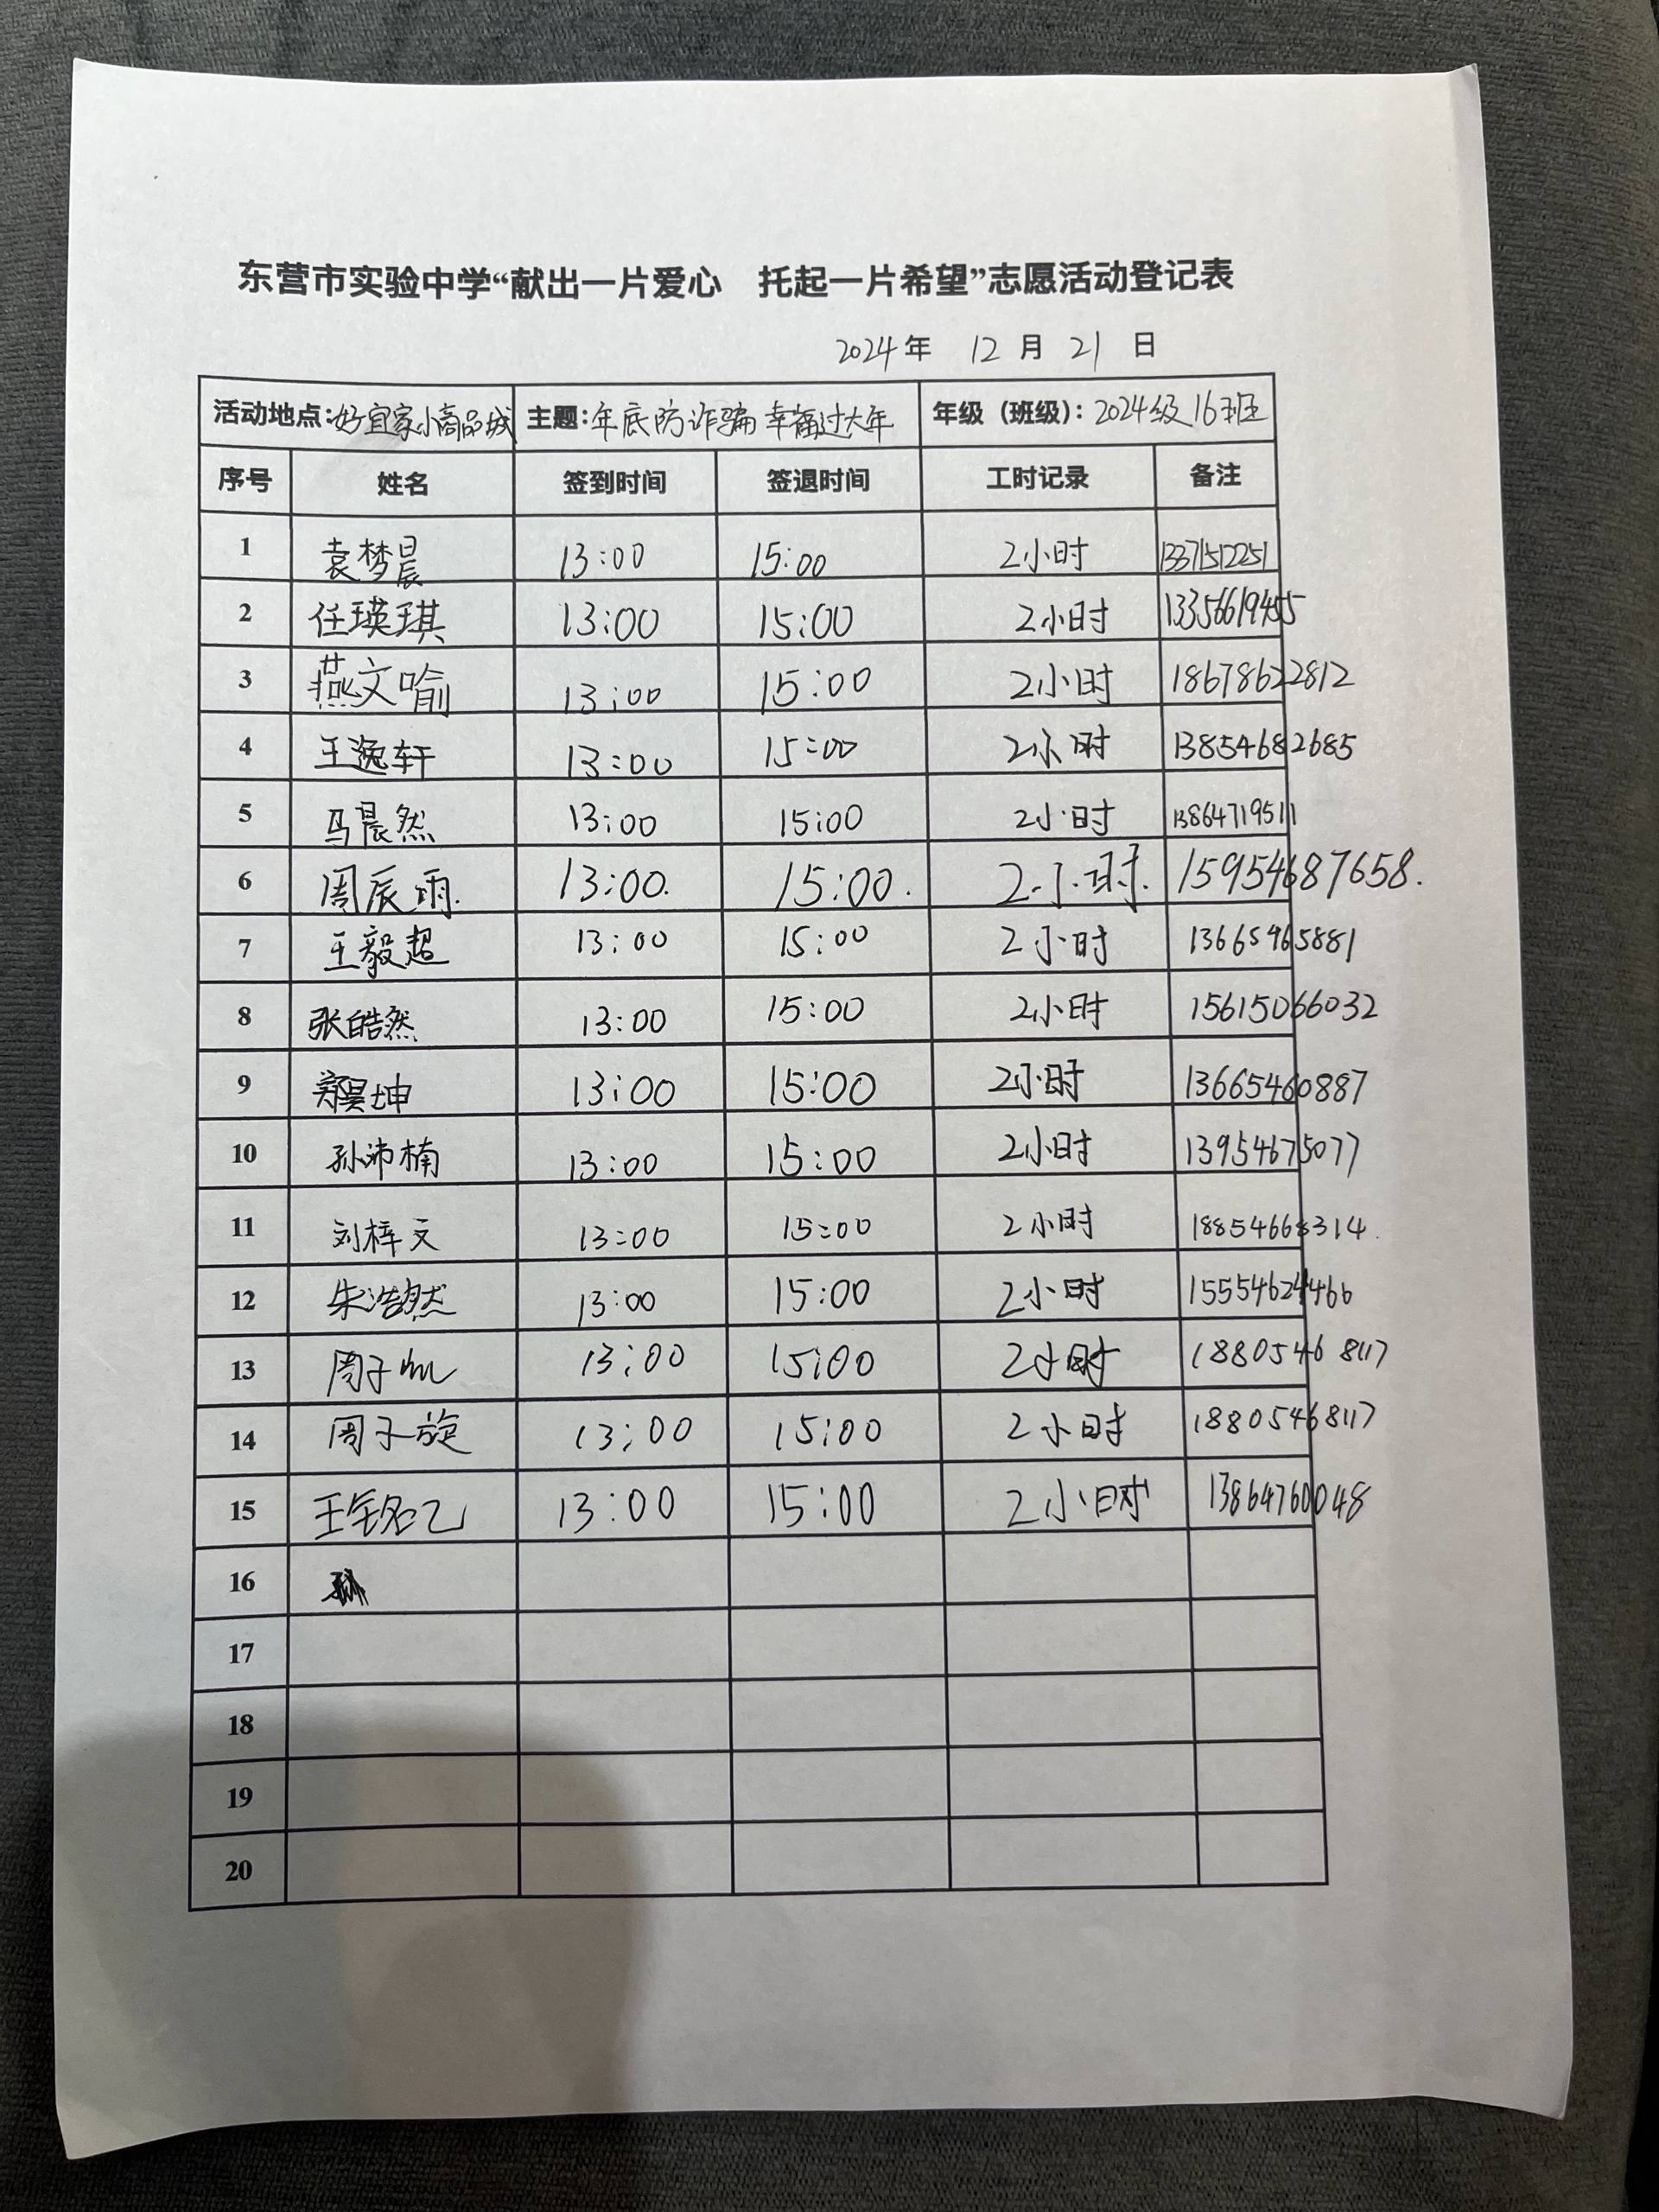 东营市实验中学“献出一片爱心 托起一片希望”志愿活动登记表
2024年 12月 21 日
活动地点:好宜家小商品城 主题:年底防诈骗 幸福过大年 年级（班级）: 2024级16班
序号 姓名 签到时间 签退时间 工时记录 备注
1 袁梦晨 13:00 15:00 2小时 13371512251
2 任瑛琪 13:00 15:00 2小时 13356619455
3 燕文喻 13:00 15:00 2小时 18678622812
4 王逸轩 13:00 15:00 2小时 13854682685
5 马晨然 13:00 15:00 2小时 13864719511
6 周辰雨. 13:00. 15:00. 2小时. 15954687658.
7 王毅超 13:00 15:00 2小时 13665965881
8 张皓然 13:00 15:00 2小时 15615066032
9 郑昊坤 13:00 15:00 2小时 13665460887
10 孙沛楠 13:00 15:00 2小时 13954675077
11 刘梓文 13:00 15:00 2小时 18854668314.
12 朱浩然 13:00 15:00 2小时 15554624466
13 周子 13:00 15:00 2小时 18805468117
14 周子旋 13:00 15:00 2小时 18805468117
15 王 13:00 15:00 2小时 13864760048
16
17
18
19
20